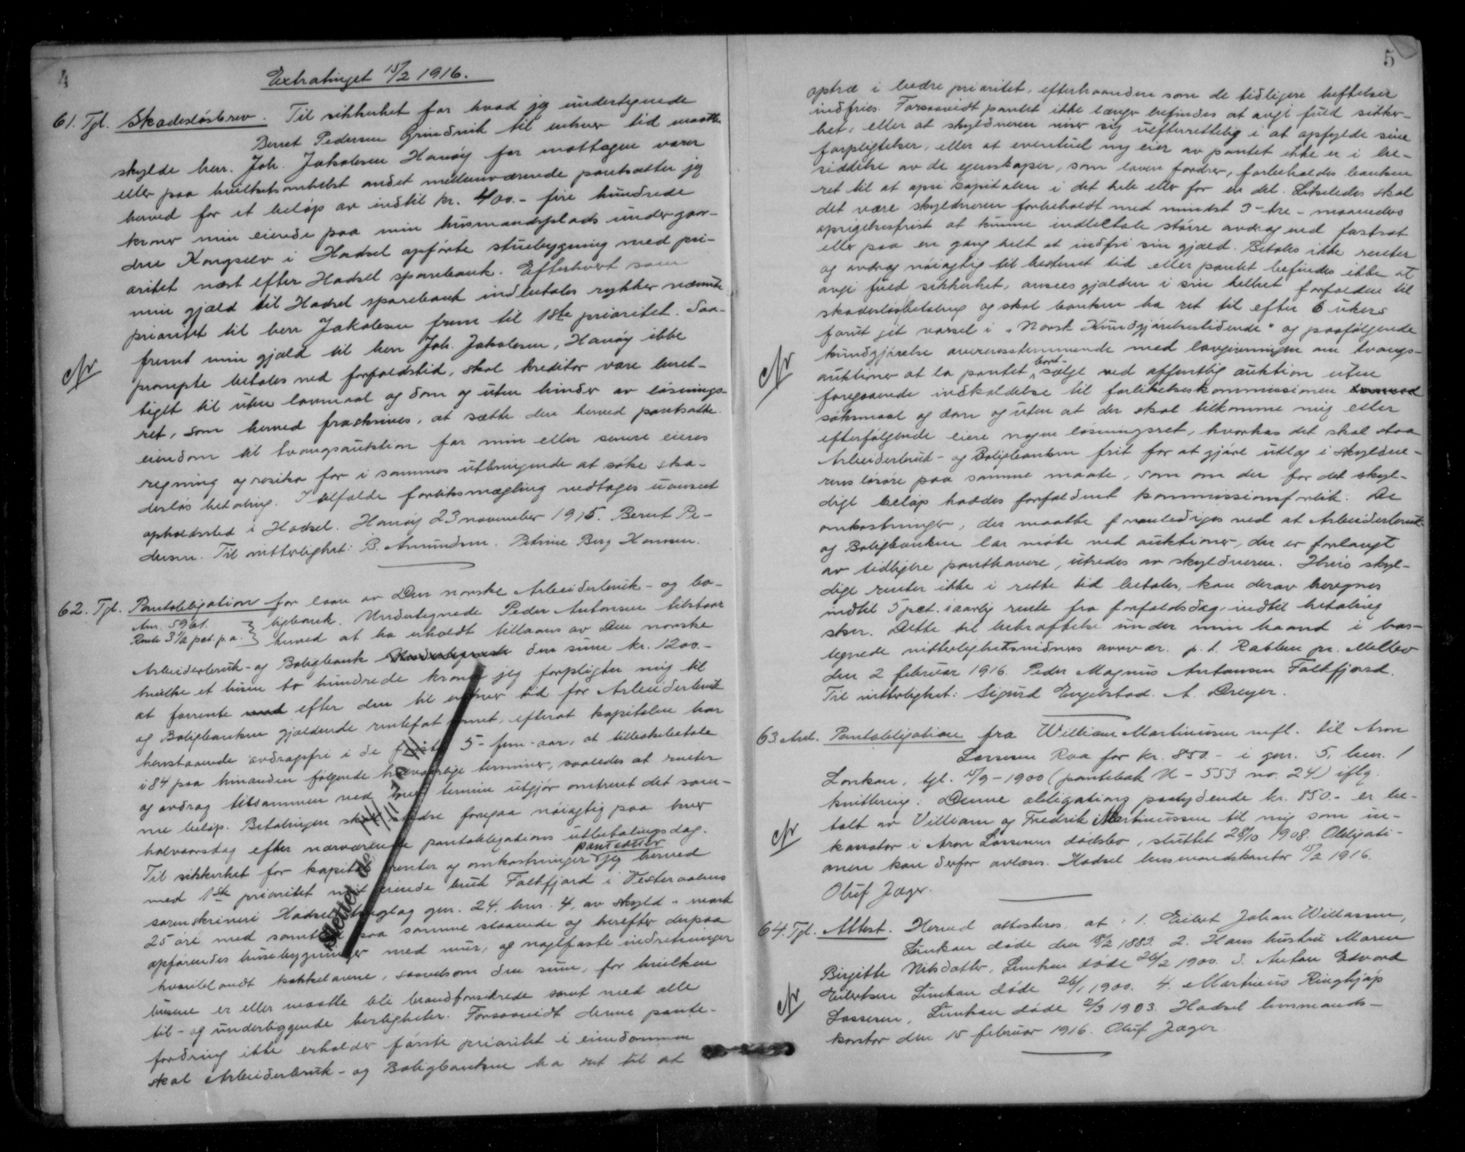 4
Extratinget 15/2 1916.
61. Tgl. Skadesløsbrev. Til sikkerhet for hvad jeg undertegnede
Berut Pedersen Grundvik til enhver tid maatte
skylde herr. Joh. Jakobsen Hanøy for mottagne varer
eller paa hvilketsomhelst andet medenværende pantsætter jeg
herved for et beløp av indtil kr. 400.- fire hundrede
kroner min eiende paa min husmandsplads under gaar-
den Kongselv i Hadsel opførte stuebygning med pri-
oritet næst efter Hadsel sparebank. Efterhvert som
min gjæld til Hadsel sparebank indbetales rykker nævnte
prioritet til herr Jakobsen frem til 1ste prioritet. Saa-
fremt min gjæld til herr Joh. Jakobsen, Hanøy ikke
prompte betales ved forfaldstid, skal kreditor være beret-
tiget til uten lovmaal og dom og uten hinder av løsnings-
ret, som herved fraskrives, at sætte den herved pantsatte
eiendom til tvangsauktion for min eller senere eieres
regning og risiko for i sammes utbringende at søke ska-
desløs betaling. I tilfælde forliksmægling vedtages uanset
opholdssted i Hadsel. Hanøy 23 november 1915. Berut Pe-
dersen. Til vitterlighet: B. Amundsen. Petrine Berg Hansen.
62. Tgl. Pantobligation for laan av Den norske Arbeiderbruk- og bo-
Am. 59 at. ligbank. Undertegnede Peder Antonsen tilstaar
Rente 3½ pct. p.a. herved at ha erholdt tillaans av Den norske
Arbeiderbruk- og Boligbank den sum kr. 1200.-
hvilke et tusen to hundrede kroner jeg forpligter mig til
at forrente efter den til enhver tid for Arbeiderbruk
og Boligbanken gjældende rentefot samt, efterat kapitalen har
henstaaende avdragsfri i de første 5 - fem - aar, at tilbakebetale
i 84 paa hinanden følgende halvaarlige terminer, saaledes at renter
og avdrag tilsammen ved hver termin utgjør omtrent det sam-
me beløp. Betalingen skal foregaa nøiagtig paa hver
halvaarsdag efter nærværende pantobligations utbetalingsdag.
Til sikkerhet for kapital, renter og omkostninger pantsætter jeg herved
med 1ste prioritet mit eiende bruk Faldfjord i Vesteraalens
sorenskriveri Hadsel tinglag gnr. 24. bnr. 4. av skyld - mark
25 øre med samtlige paa samme staaende og herefter derpaa
opførendes husebygninger med mur, og naglfaste indretninger
hvoriblandt kakkelovne, saavelsom den sum, for hvilken
husene er eller maatte bli brandforsikrede samt med alle
til- og underliggende herligheter. Forsaavidt denne pante-
fordring ikke erholder første prioritet i eiendommen
skal Arbeiderbruk- og Boligbanken ha ret til at
Slettet
5
optræ i bedre prioritet, efterhaanden som de tidligere heftelser
indfries. Forsaavidt pantet ikke længer befindes at avgi fuld sikker-
het, eller at skyldneren viser sig uefterrettelig i at opfylde sine
forpligtelser, eller at eventuel ny eier av pantet ikke er i be-
siddelse av de egenskaper, som loven fordrer, forbeholdes banken
ret til at opsi kapitalen i det hele eller for en del. Likeledes skal
det være skyldneren forbeholdt med mindst 3 - tre - maaneders
opsigelsesfrist at kunne indbetale større avdrag end fastsat
eller paa en gang helt at indfri sin gjæld. Betales ikke renter
og avdrag nøiagtig til bestemt tid eller pantet befindes ikke at
avgi fuld sikkerhet, ansees gjælden i sin helhet forfalden til
skadesløsbetaling og skal banken ha ret til efter 6 ukers
forut git varsel i "Norsk Kundgjørelsestidende" og paafølgende
kundgjørelse overensstemmende med lovgivningen om tvangs-
auktioner at la pantet bort-sælge ved offentlig auktion uten
foregaaende indkaldelse til forlikelseskommissionen
søksmaal og dom og uten at der skal tilkomme mig eller
efterfølgende eiere nogen løsningsret, hvorhos det skal staa
Arbeiderbruk- og Boligbanken frit for at gjøre utlæg i skyldne-
rens løsøre paa samme maate, som om der for det skyl-
dige beløp haddes forfaldent kommissionsforlik. De
omkostninger, der maatte foranlediges ved at Arbeiderbruk
og Boligbanken lar møte ved auktioner, der er forlangt
av tidligere panthavere, utredes av skyldneren. Hvis skyl-
dige renter ikke i rette tid betales, kan derav beregnes
indtil 5 pct. i aarlig rente fra forfaldsdag, indtil betaling
sker. Dette til bekræftelse under min haand i
tegnede vitterlighetsvidners overvær. p. t. Rabben pr. Melbo
den 2 februar 1916. Peder Magnus Antonsen Faldfjord.
Til vitterlighet: Sigurd Engelstad. A. Dreyer.
63 Avl. Pantobligation fra William Martinussen m.fl. til Aron
Larssen Roa for kr. 850 - i gnr. 5, bnr. 1
Lonkan, tgl. 15/9-1900 (pantebok N - 553 no. 24) iflg.
kvittering: Denne obligation paalydende kr. 850.- er be-
talt av William og Fredrik Martinussen til mig som in-
kassator i Aron Larssens dødsbo, sluttet 28/10 1908. Obligati-
onen kan derfor avlæses. Hadsel lensmandskontor 15/2 1916.
Oluf Jæger.
64. Tgl. Attest. Herved attesteres at: 1. Eilert Johan Willassen,
Lonkan døde den 18/2 1883. 2. Hans hustru Maren
Birgitte Nilsdatter, Lonkan døde 26/2 1900. 3. Anton Edvard
Eilertsen Lonkan døde 26/1 1900. 4. Martinius Ringhjøp
Larssen, Lonkan døde 2/3 1903. Hadsel lensmands-
kontor den 15 februar 1916. Oluf Jæger.